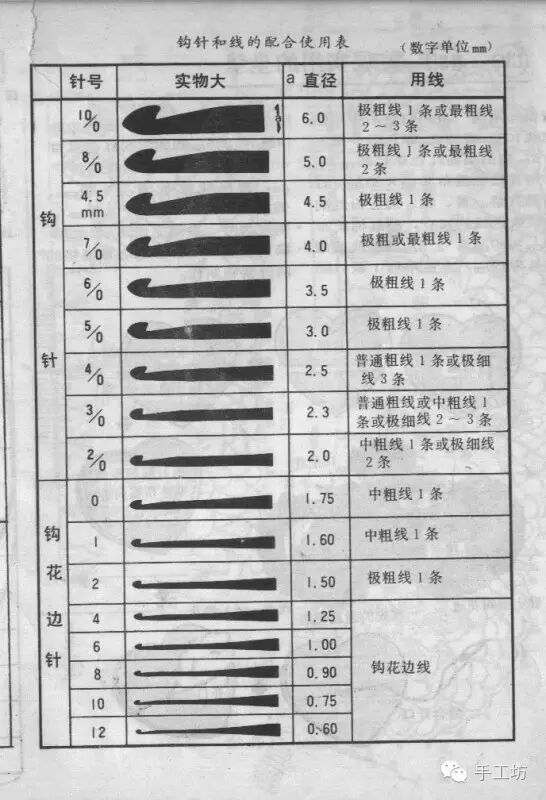 钩针和线的配合使用表
(数字单位mm)
针号 实物大 a 直径 用线
钩针
10/0 a 6.0 极粗线1条或最粗线
2～3条
8/0 5.0 极粗线1条或最粗线
2条
4.5
mm 4.5 极粗线1条
7/0 4.0 极粗或最粗线1条
6/0 3.5 极粗线1条
5/0 3.0 极粗线1条
4/0 2.5 普通粗线1条或极细
线3条
3/0 2.3 普通粗线或中粗线1
条或极细线2～3条
2/0 2.0 中粗线1条或极细线
2条
钩花边针
0 1.75 中粗线1条
1 1.60 中粗线1条
2 1.50 极粗线1条
4 1.25
6 1.00
8 0.90 钩花边线
10 0.75
12 0.60
手工坊